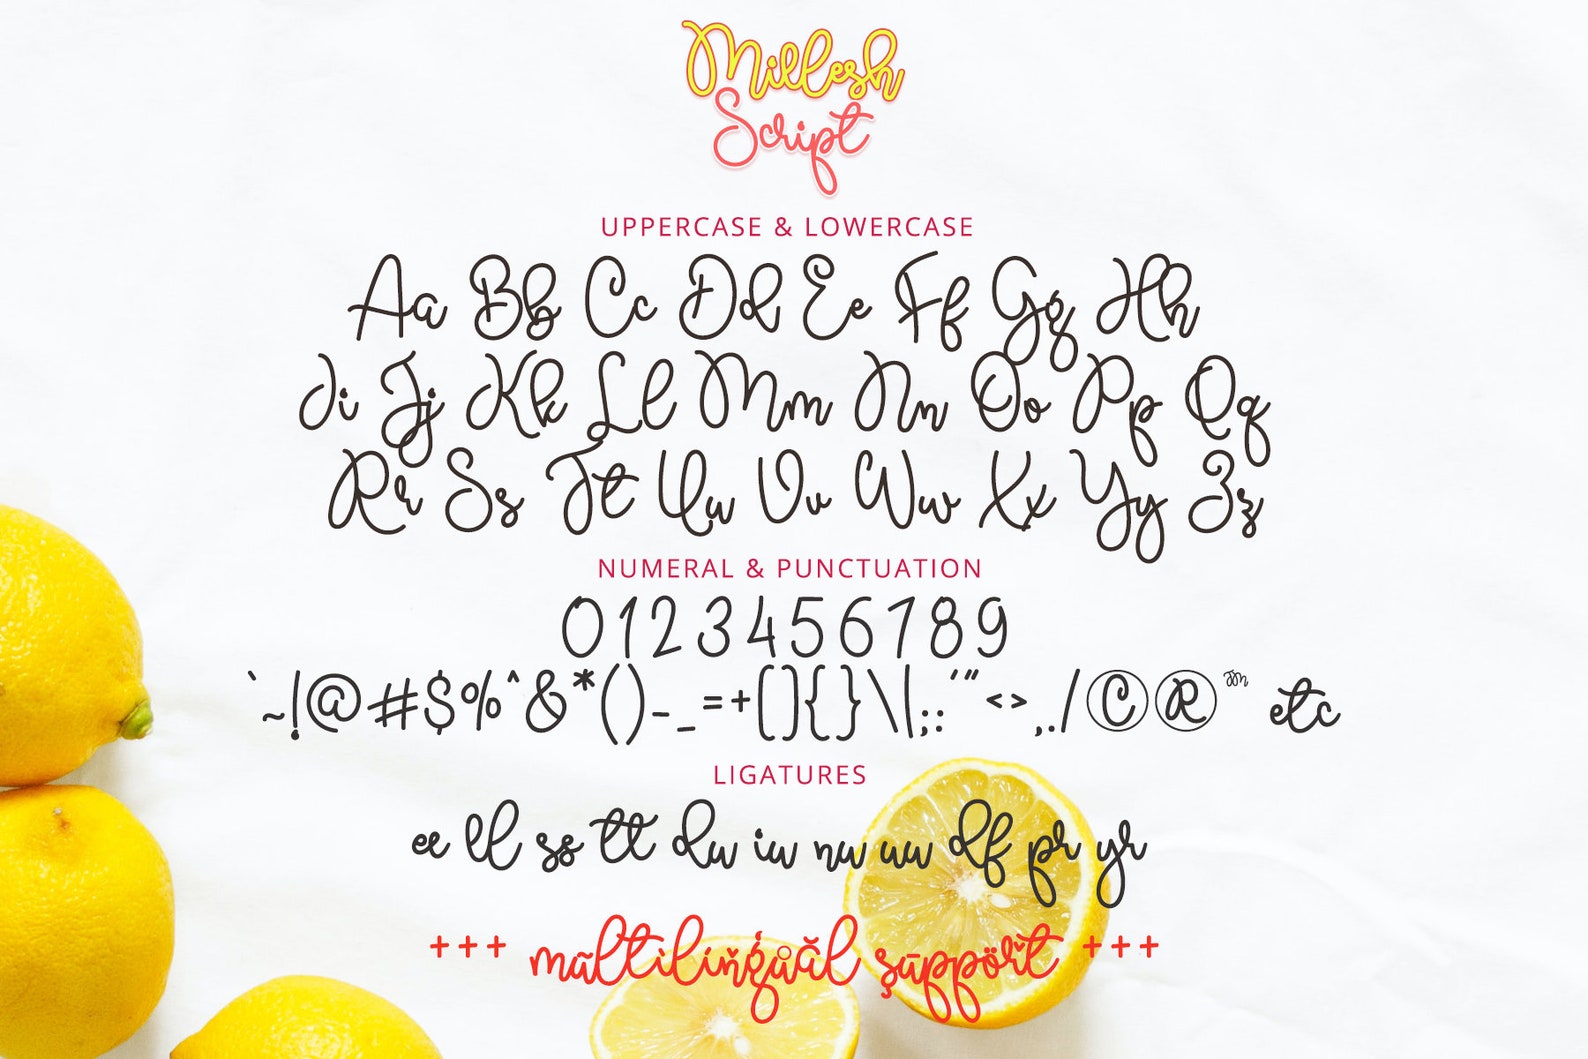 Millesh
Script
UPPERCASE & LOWERCASE
Aa Bb Cc Dd Ee Ff Gg Hh
Ii Jj Kk Ll Mm Nn Oo Pp Qq
Rr Ss Tt Uu Vv Ww Xx Yy Zz
NUMERAL & PUNCTUATION
0123456789
`~!@#$%^&*()-_=+[]{}\|;:'"<>,./©®™ etc
LIGATURES
ee ll ss tt du iu nu uu df pr yr
+++ mūltìlíňģůăl şūppöřt +++